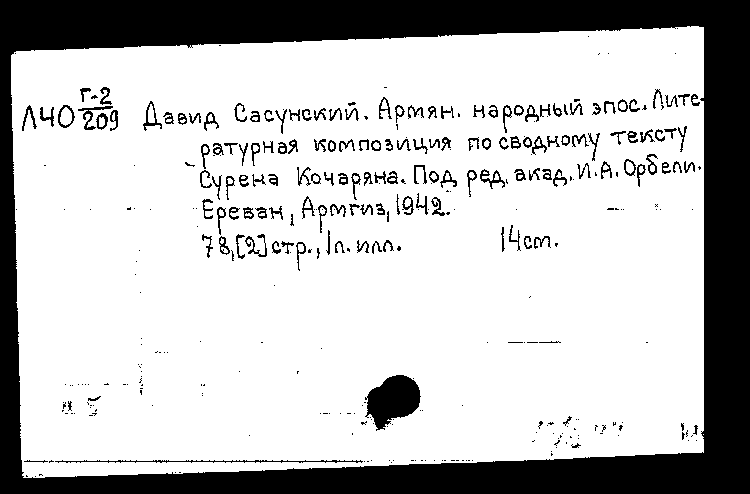 Л40 Г-2/209 Давид Сасунский. Армян. народный эпос. Лите-
ратурная композиция по сводному тексту
Сурена Кочаряна. Под ред. акад. И.А. Орбели.
Ереван, Армгиз, 1942.
78,[2] стр., 1л. илл. 14см.